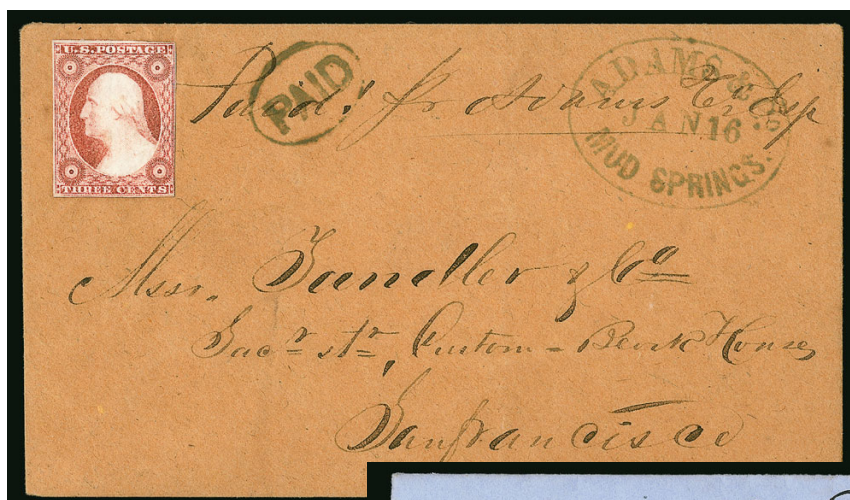 U.S. POSTAGE
THREE CENTS
PAID
Paid pr Adams & Co Exp
ADAMS & Co
JAN 16
MUD SPRINGS.
Messr. Sandler & Co
Sacr str, Custom - House
Sanfrancisco